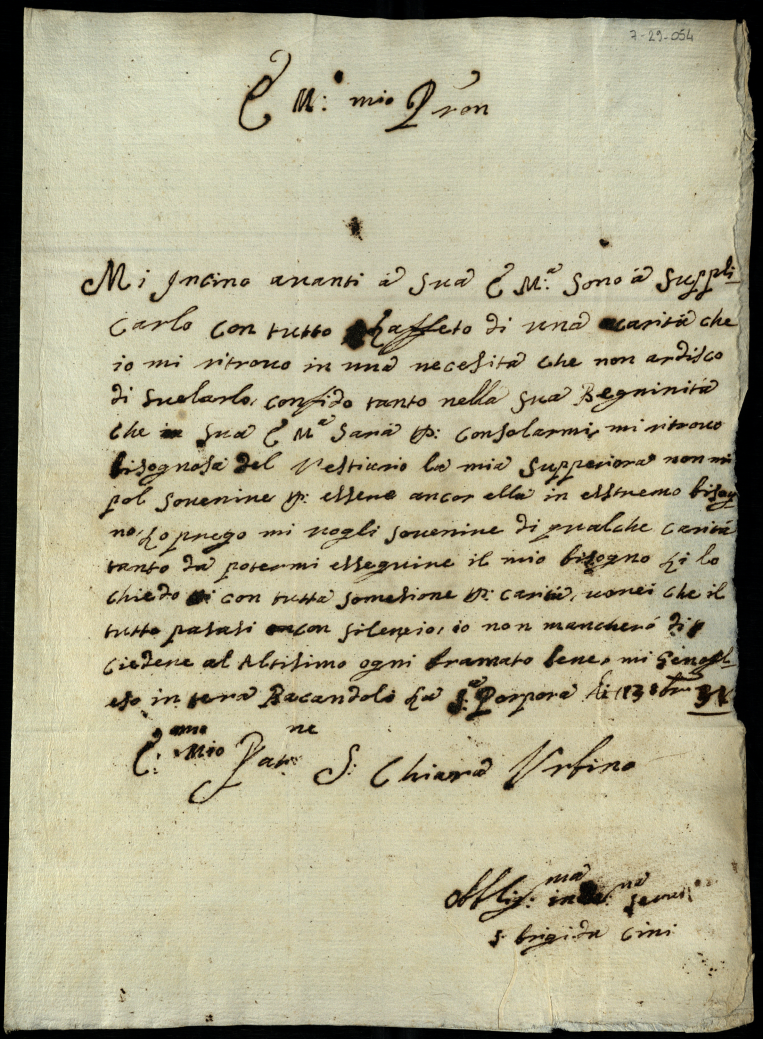 7-29-054
E M: mio Pron
Mi Incino avanti à Sua E M:a Sono à Suppli
Carlo Con tutto Laffeto di una carità che
io mi ritrovo in una necesità che non ardisco
di Suelarlo, confido tanto nella Sua Begninità
che Sua E Ma Sarà p: Consolarmi, mi ritrovo
bisognosa del Vestiario la mia Supperiora non mi
pol Sovenire p: essere ancor ella in esstremo bisog
no, Lo prego mi vogli Sovenire di qualche Carità
tanto da potermi esseguire il mio bisogno Gi lo
chiedo con tutta Somesione p: carità, vorei che il
tutto pasasi con Silencio, io non mancherò di
Ciedere al Altisimo ogni bramato bene, mi Genofl
eso in tera Bacandoli La S:a Porpora li 13 8bre
E:mo Mio Pat:ne S: Chiara Urbino
Obblig:ma in:ma Serva
S: brigida Cini